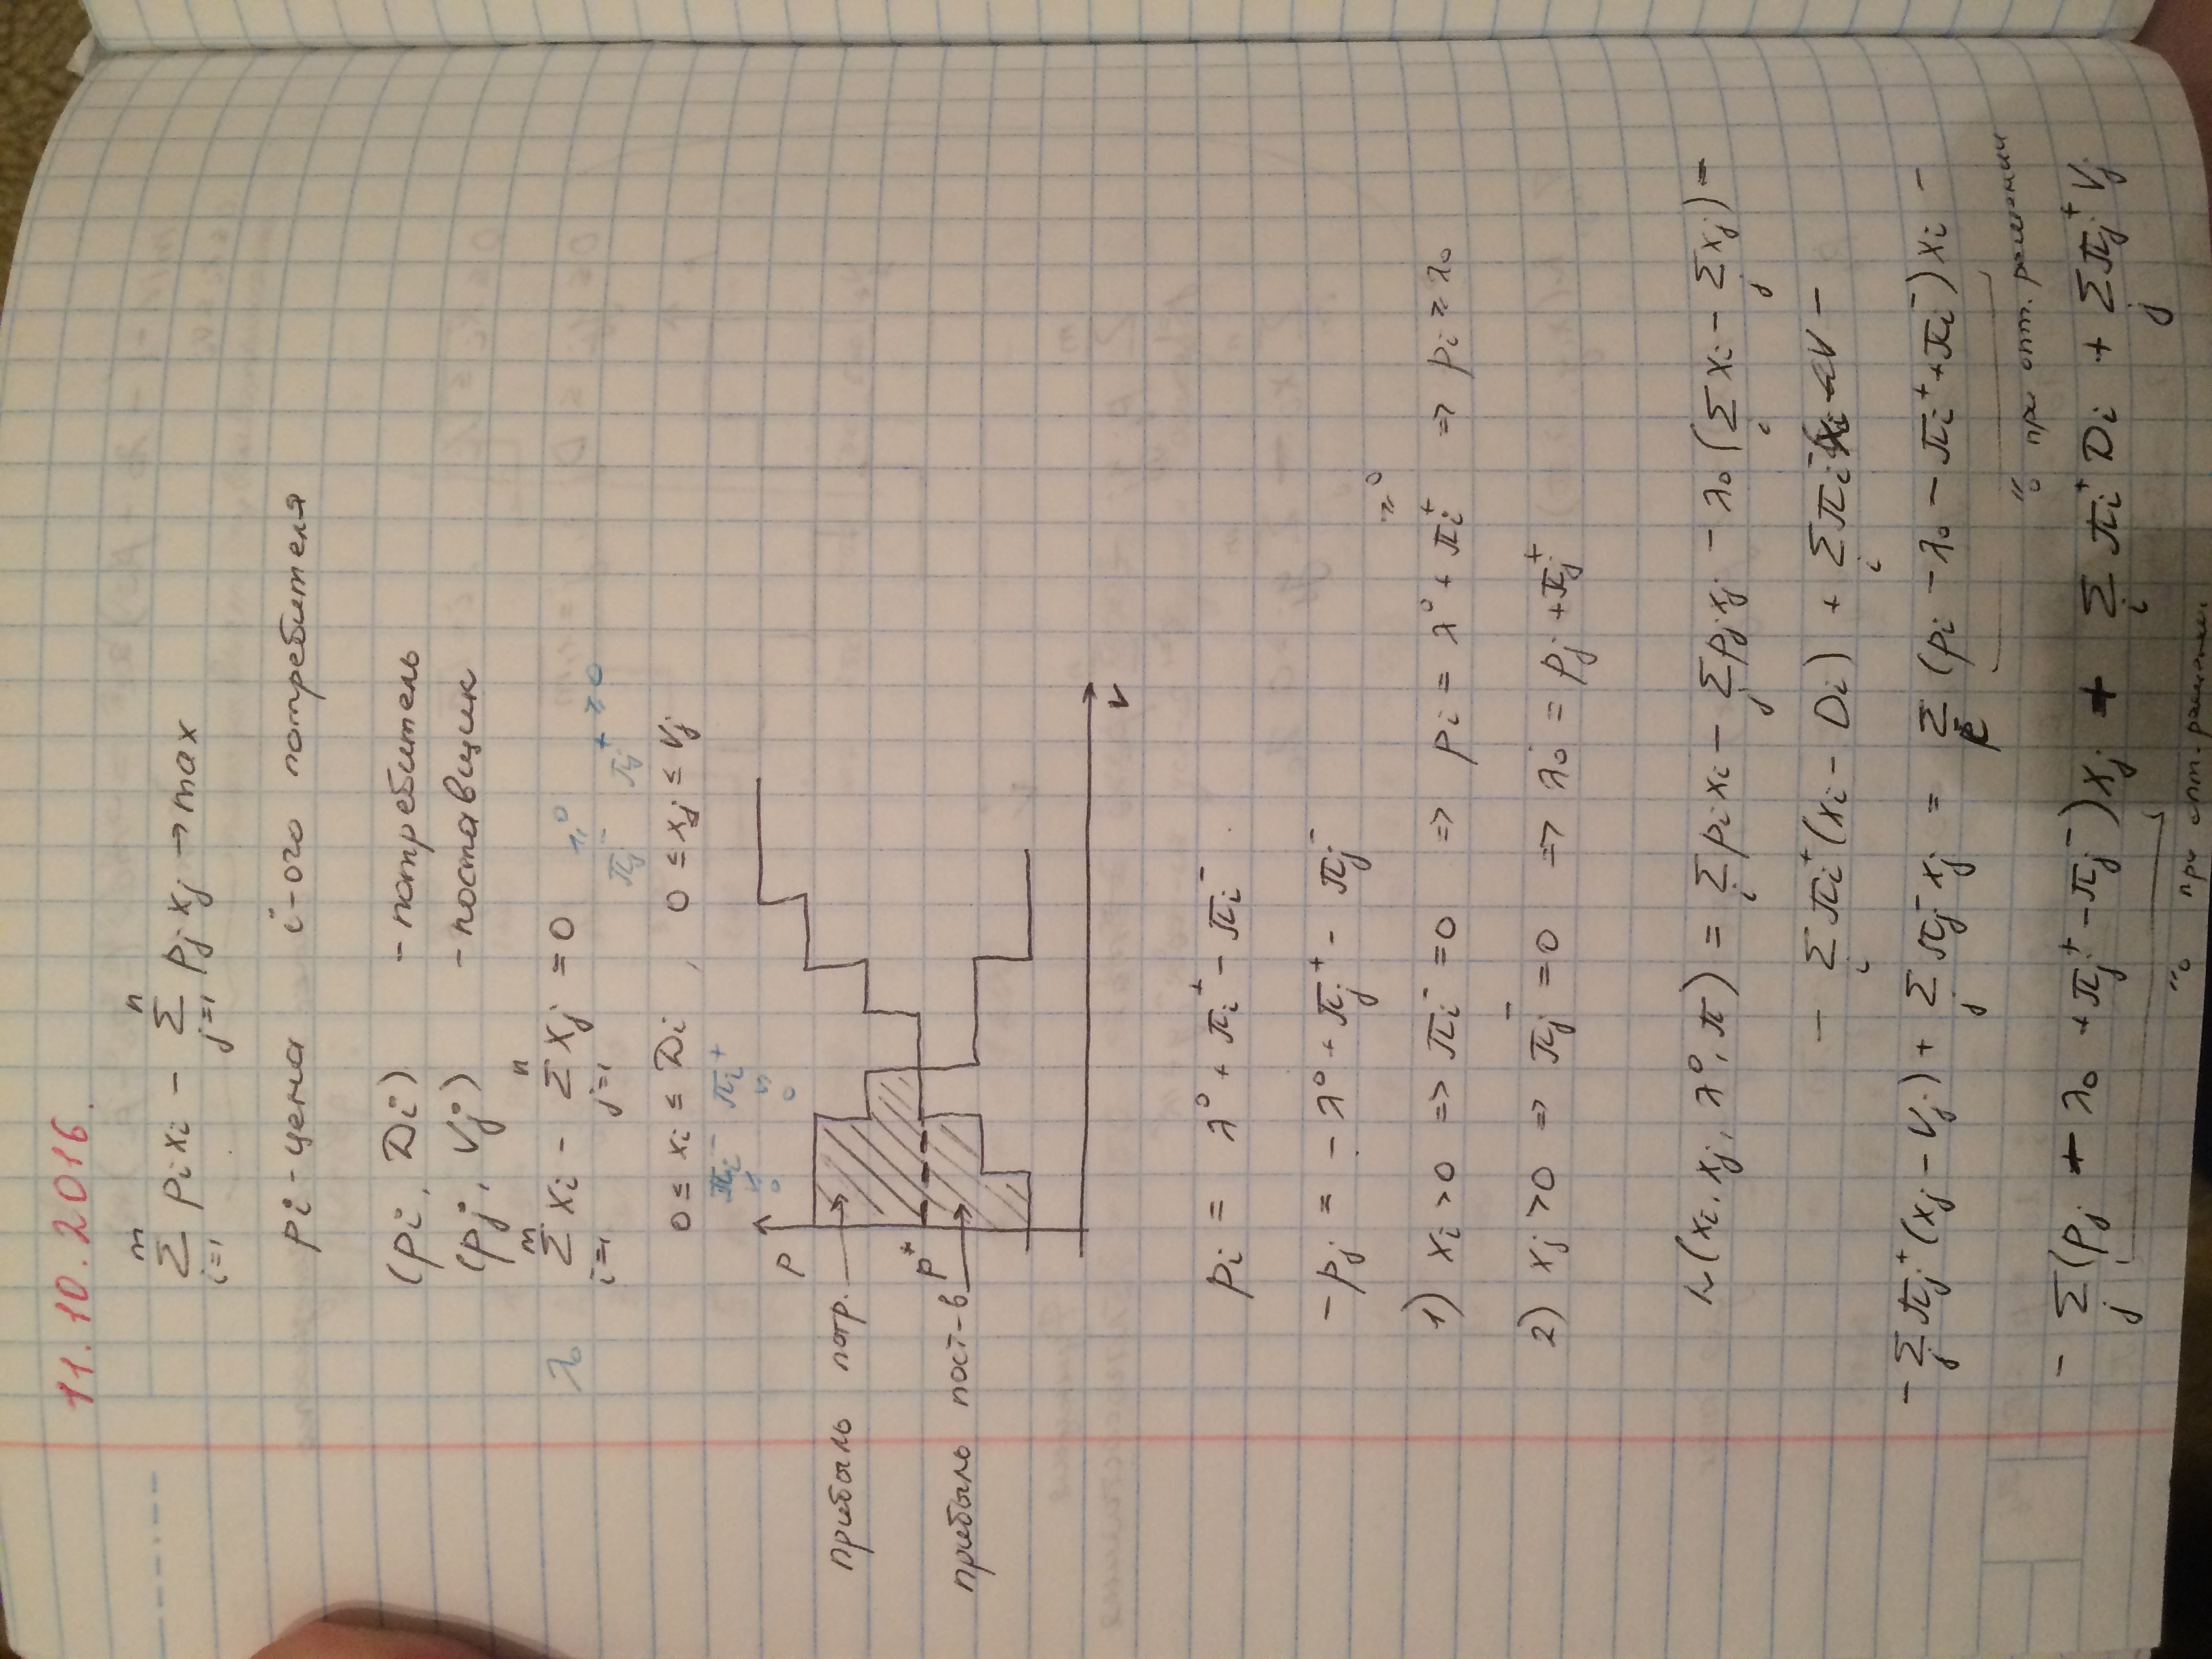 11.10.2016.
m∑i=1 pi xi − n∑j=1 Pj xj → max
Pi - цена i-ого потребителя
(Pi, Di) - потребитель
(Pj, Vj) - поставщик
λ₀ m∑i=1 xi − n∑j=1 xj = 0
0 ≤ xi ≤ Di , 0 ≤ xj ≤ Vj
πi⁻ πi⁺
πj⁻ πj⁺ ≥ 0
P
прибыль потр.
P*
прибыль пост-в
V
pi = λ⁰ + πi⁺ − πi⁻
−pj = −λ⁰ + πj⁺ − πj⁻
1) xi > 0 ⇒ πi⁻ = 0 ⇒ pi = λ⁰ + πi⁺ ⇒ pi ≥ λ₀
≥0
2) xj > 0 ⇒ πj⁻ = 0 ⇒ λ₀ = pj + πj⁺
L(xi, xj, λ⁰, π) = ∑i pi xi − ∑j pj xj − λ₀(∑i xi − ∑j xj) −
− ∑i πi⁺(xi − Di) + ∑i πi⁻ xi −
− ∑j πj⁺(xj − Vj) + ∑j πj⁻ xj = ∑ (pi − λ₀ − πi⁺ + πi⁻) xi −
"0 при опт. решении
− ∑j (pj + λ₀ + πj⁺ − πj⁻) xj + ∑i πi⁺ Di + ∑j πj⁺ Vj
"0 при опт. решении